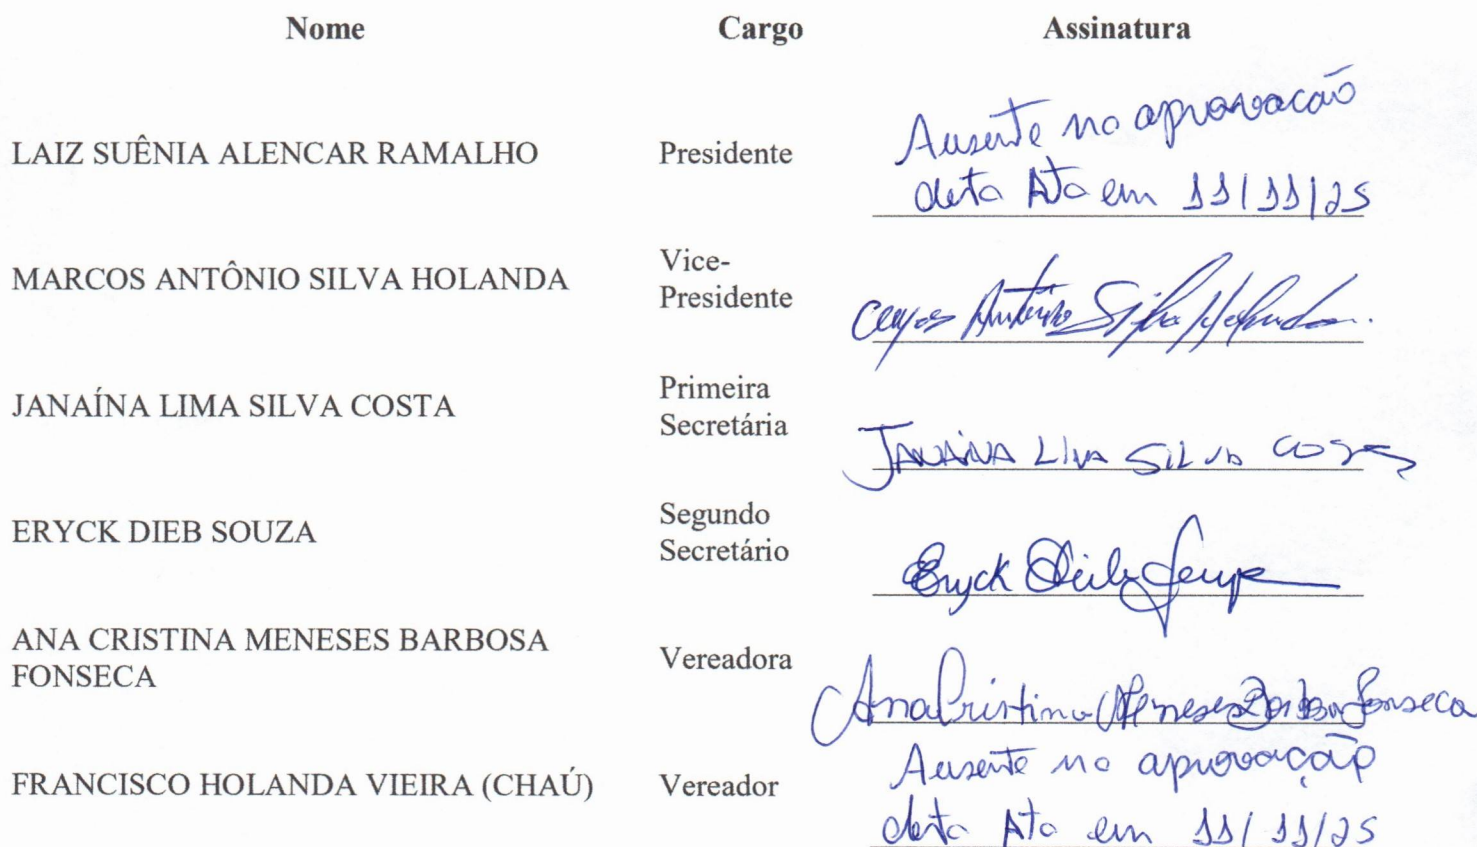 Nome Cargo Assinatura
LAIZ SUÊNIA ALENCAR RAMALHO Presidente Ausente na aprovacão
desta Ata em 11/11/25
MARCOS ANTÔNIO SILVA HOLANDA Vice-
Presidente Antônio Silva Holanda
JANAÍNA LIMA SILVA COSTA Primeira
Secretária JANAÍNA LIMA SILVA COSTA
ERYCK DIEB SOUZA Segundo
Secretário Eryck Dieb Souza
ANA CRISTINA MENESES BARBOSA
FONSECA Vereadora Ana Cristina Meneses Barbosa Fonseca
FRANCISCO HOLANDA VIEIRA (CHAÚ) Vereador Ausente na aprovação
desta Ata em 11/11/25